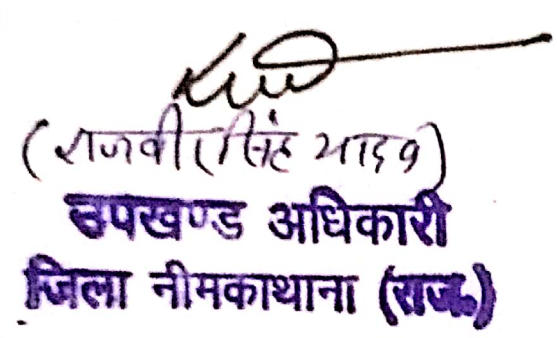 (राजवीर सिंह यादव)
उपखण्ड अधिकारी
जिला नीमकाथाना (राज.)